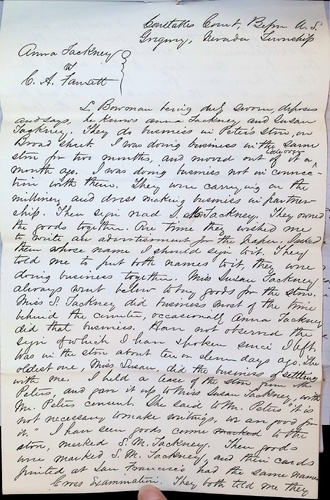 Constables Court, Before A. S.
Gregory, Nevada Township
Anna Tackney
vs
C. A. Fawsett
L. Bowman being duly sworn, deposes
and says, he knows Anna Tackney and Susan
Tackney. They do business in Peters store, on
Broad Street. I was doing business in the same
store for two months, and moved out of it a
month ago. I was doing business not in connec-
tion with them. They were carrying on the
millinery and dress making business in partner-
ship. Their sign read S. Tackney. They owned
the goods together. One time they wished me
to write an advertisement for the paper. I asked
them whose name I should sign to it. They
told me to put both names to it, they were
doing business together. Miss Susan Tackney
always went below to buy goods for the store.
Miss S. Tackney did business most of the time
behind the counter, occasionally Anna Tackney
did that business. Have not observed the
sign of which I have spoken since I left.
Was in the store about ten or eleven days ago. The
oldest one, Miss Susan, did the business of settling
with me. I held a lease of the store from
Peters, and gave it up to Miss Susan Tackney, with
Mr. Peters consent. She said to Mr. Peters "it is
not necessary to make writings, we are good for
it." I have seen goods come to the
store, marked S. M. Tackney. Their goods
were marked S. M. Tackney, and their cards
printed at San Francisco had the same name
Cross Examination. They both told me they